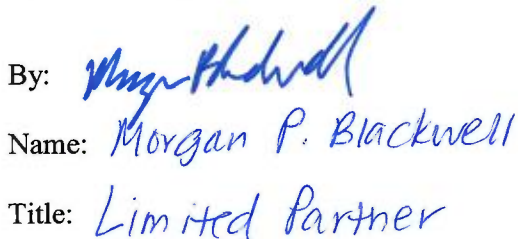 By: Morgan Blackwell
Name: Morgan P. Blackwell
Title: Limited Partner